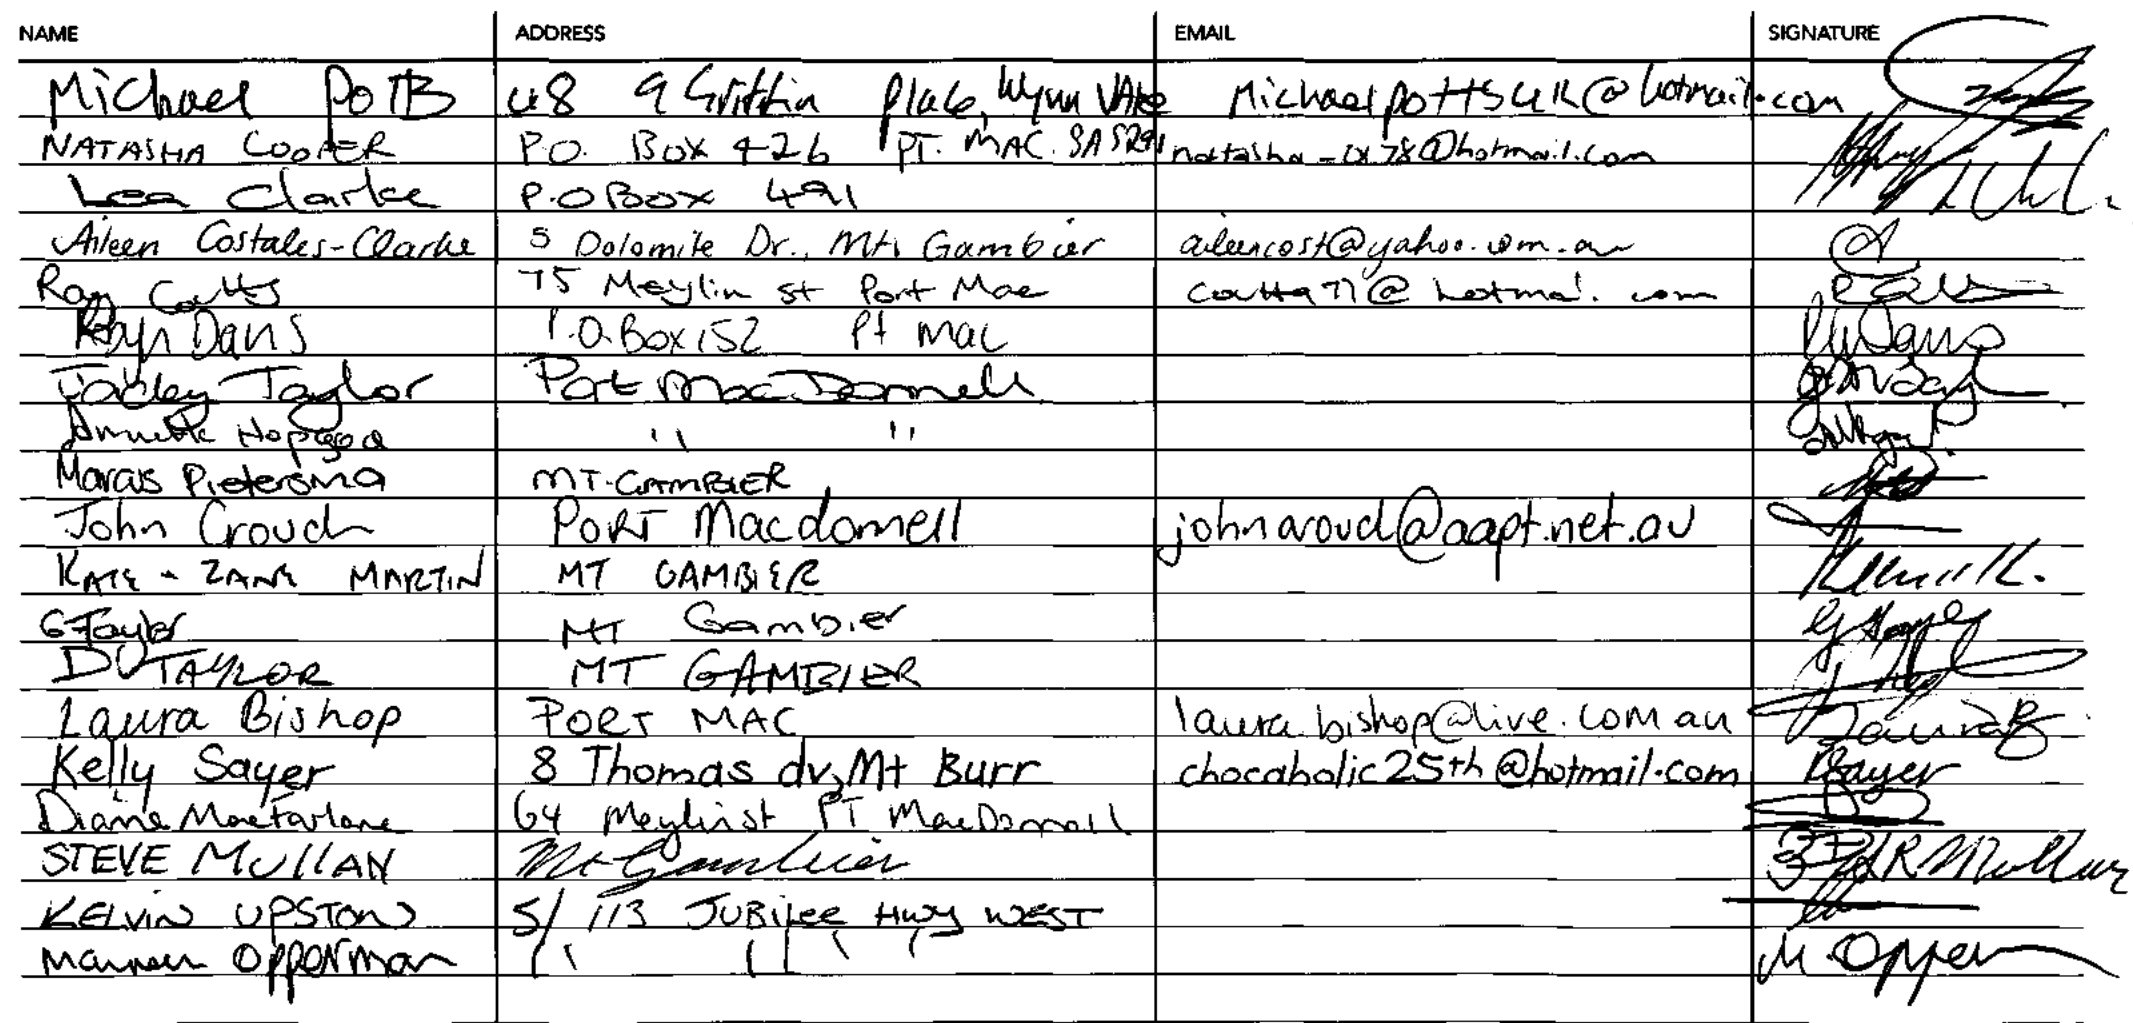 NAME ADDRESS EMAIL SIGNATURE
Michael Potts U8 9 Griffin Place, Wynn Vale Michaelpottsuk@hotmail.com
NATASHA COOPER P.O. BOX 426 PT. MAC. SA 5291 natasha_ix78@hotmail.com
Lea Clarke P.O Box 491
Aileen Costales-Clarke 5 Dolomite Dr., Mt. Gambier aileencost@yahoo.com.au
Coutts 75 Meylin st Port Mac
Robyn Davis P.O. Box 152 Pt Mac
Taylor Port MacDonnell
Annette Hopgood " "
Marcus Pietersma MT-GAMBIER
John Crouch PORT Macdonnell johncrouch@aapt.net.au
KATE - ZANE MARTIN MT GAMBIER
G Taylor MT Gambier
D TAYLOR MT GAMBIER
Laura Bishop PORT MAC laura.bishop@live.com.au
Kelly Sayer 8 Thomas dv, Mt Burr chocaholic25th@hotmail.com
Diane MacFarlane 64 Meylin st PT MacDonnell
STEVE MULLAN Mt Gambier
KELVIN UPSTON 5/113 JUBilee Hwy WEST
Opperman M. Opper